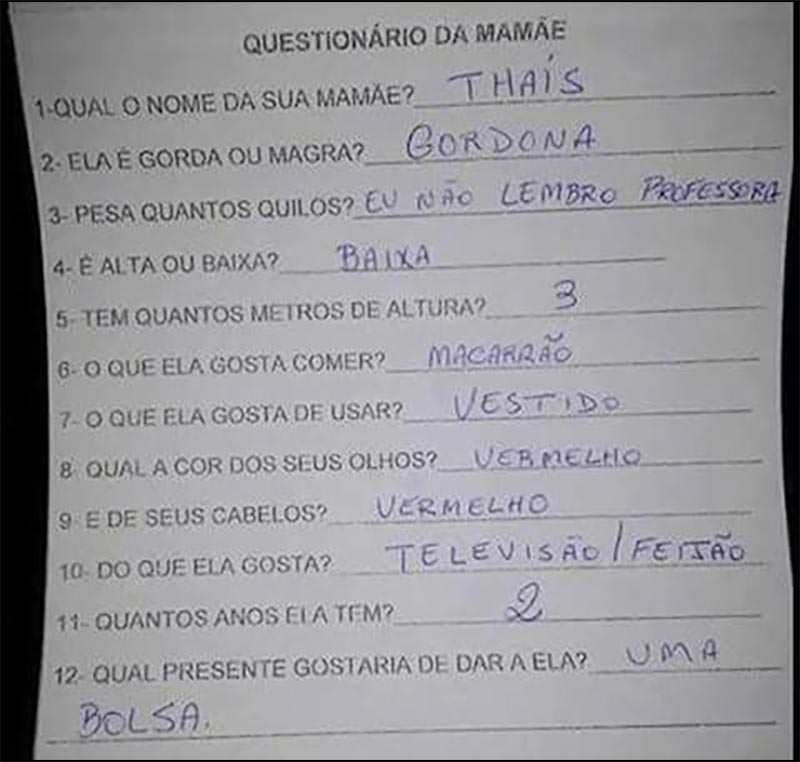 QUESTIONÁRIO DA MAMÃE
1-QUAL O NOME DA SUA MAMÃE? THAÍS
2- ELA É GORDA OU MAGRA? GORDONA
3- PESA QUANTOS QUILOS? EU NÃO LEMBRO PROFESSORA
4- É ALTA OU BAIXA? BAIXA
5- TEM QUANTOS METROS DE ALTURA? 3
6- O QUE ELA GOSTA COMER? MACARRÃO
7- O QUE ELA GOSTA DE USAR? VESTIDO
8 QUAL A COR DOS SEUS OLHOS? VERMELHO
9 E DE SEUS CABELOS? VERMELHO
10- DO QUE ELA GOSTA? TELEVISÃO/FEIJÃO
11- QUANTOS ANOS ELA TEM? 2
12- QUAL PRESENTE GOSTARIA DE DAR A ELA? UMA
BOLSA.